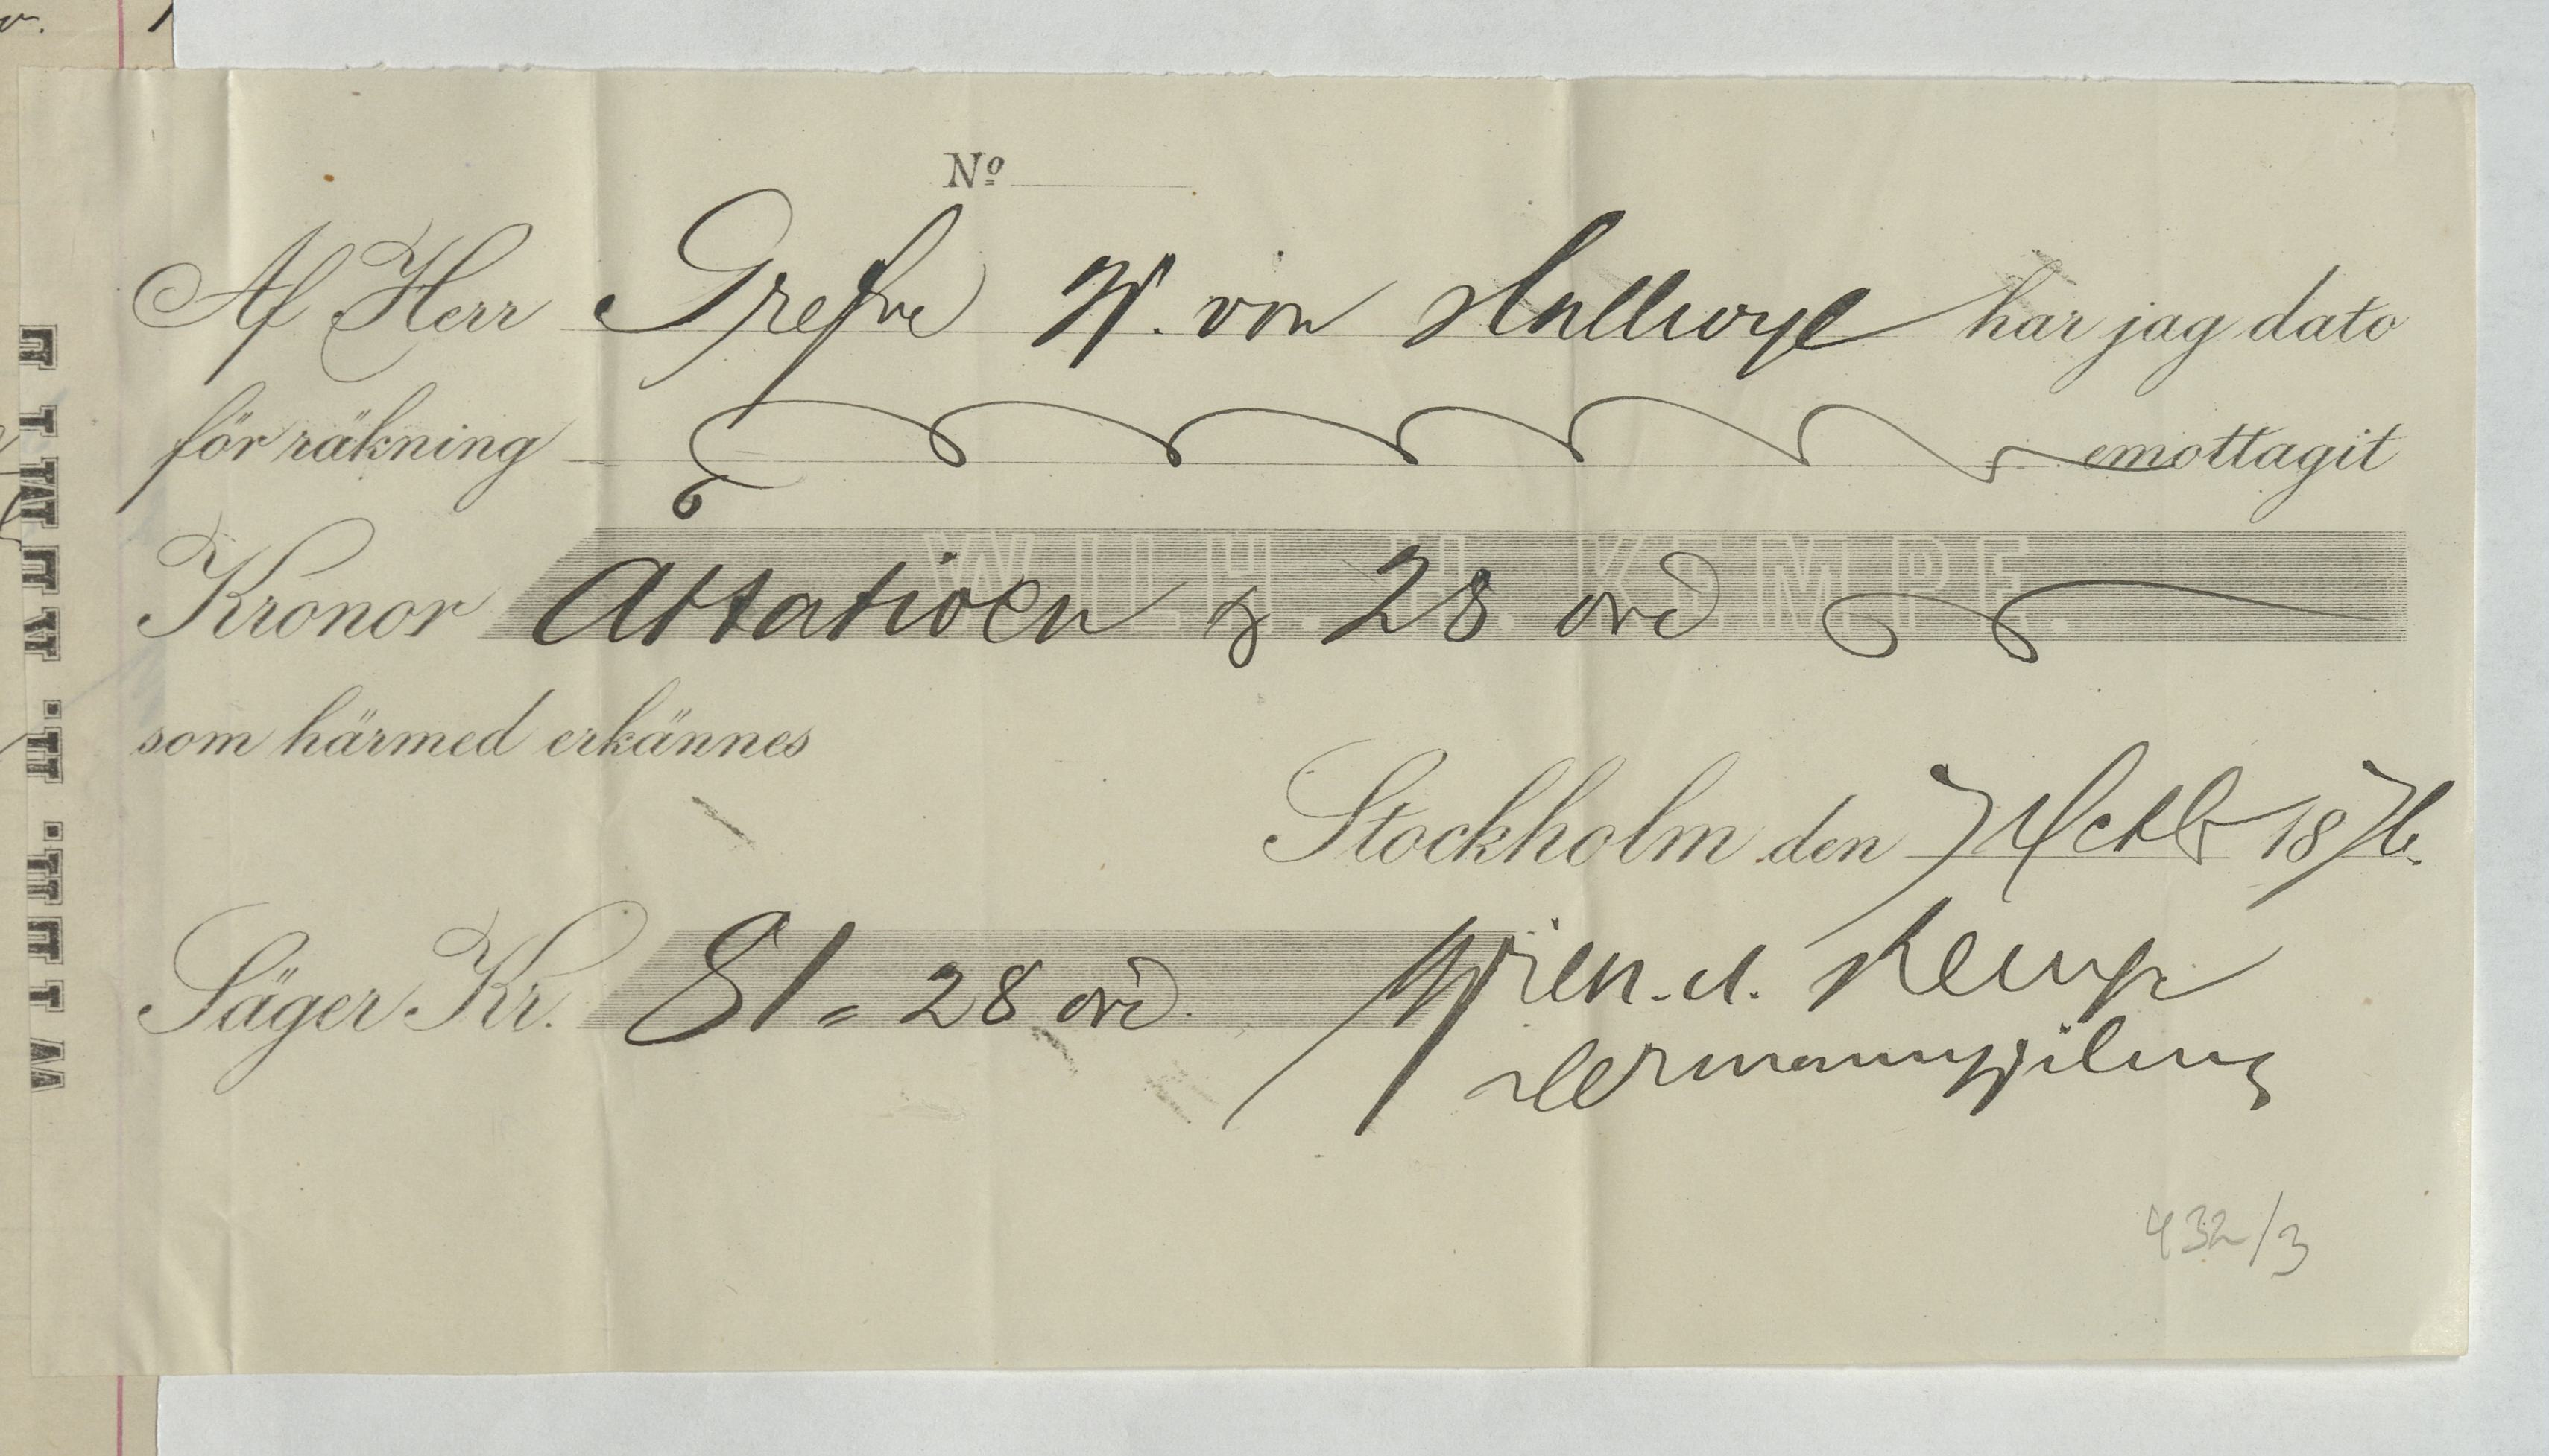 Nº
Af Herr Grefve W. von Hallwyl har jag dato
för räkning emottagit
WILH. H. KEMPF.
Kronor Åttatioen & 28 öre
som härmed erkännes
Stockholm den 7 Octb 1876.
Säger Kr. 81 = 28 öre.
432/3